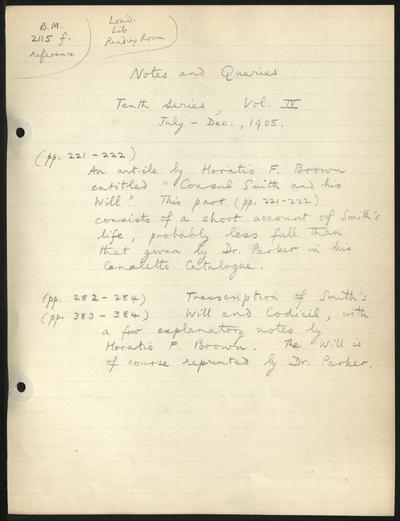 B.M.
2115 f.
reference
Lond.
Lib
Reading Room
Notes and Queries
Tenth Series, Vol. IV
July - Dec., 1905.
(pp. 221-222)
An article by Horatio F. Brown
entitled "Consul Smith and his
Will". This part (pp. 221-222)
consists of a short account of Smith's
life, probably less full than
that given by Dr. Parker in his
Canaletto Catalogue.
(pp. 282-284) Transcription of Smith's
(pp. 383-384) Will and Codicil, with
a few explanatory notes by
Horatio F. Brown. The Will is
of course reprinted by Dr. Parker.